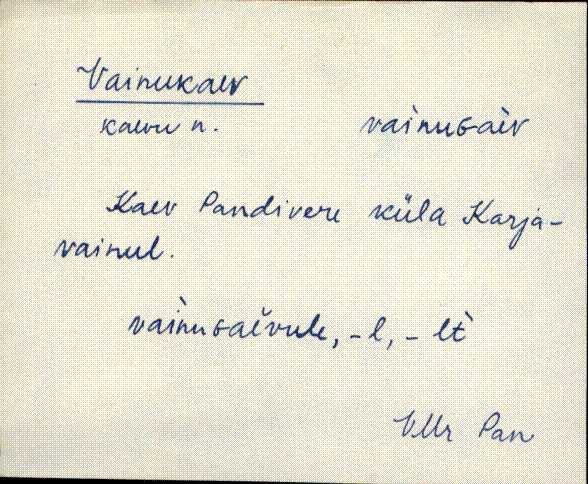 Vainukaev
kaevu n. vàinuɢàiv
Kaev Pandivere küla Karja-
vainul.
vàinuɢaìvule, -l, -lt̀
VMr Pan